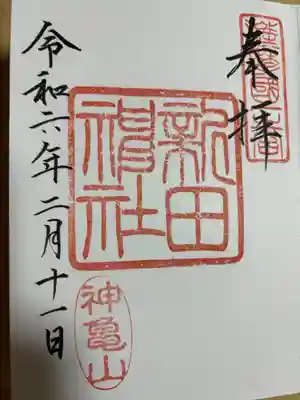 奉拝
新田神社
神亀山
令和六年二月十一日